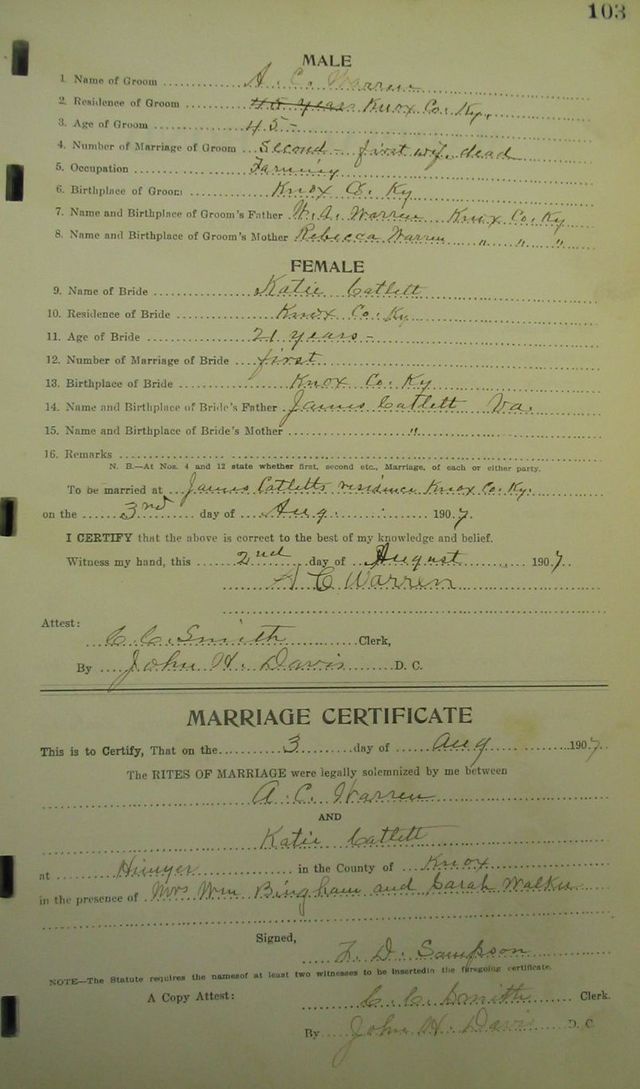 103
MALE
1. Name of Groom A. C. Warren
2. Residence of Groom 45 years Knox Co. Ky.
3. Age of Groom 45-
4. Number of Marriage of Groom Second - first wife dead
5. Occupation Farming
6. Birthplace of Groom Knox Co. Ky
7. Name and Birthplace of Groom's Father Warren Knox Co. Ky
8. Name and Birthplace of Groom's Mother Rebecca Warren " " "
FEMALE
9. Name of Bride Katie Catlett
10. Residence of Bride Knox Co. Ky
11. Age of Bride 21 years -
12. Number of Marriage of Bride first
13. Birthplace of Bride Knox Co. Ky
14. Name and Birthplace of Bride's Father James Catlett Va.
15. Name and Birthplace of Bride's Mother "
16. Remarks
N. B.—At Nos. 4 and 12 state whether first, second etc., Marriage, of each or either party.
To be married at James Catletts residence Knox Co. Ky.
on the 3rd day of Aug 1907.
I CERTIFY that the above is correct to the best of my knowledge and belief.
Witness my hand, this 2nd day of August 1907.
A C Warren
Attest:
C. C. Smith Clerk,
By John H. Davis D. C.
MARRIAGE CERTIFICATE
This is to Certify, That on the 3 day of Aug 1907.
The RITES OF MARRIAGE were legally solemnized by me between
A. C. Warren
AND
Katie Catlett
at in the County of Knox
in the presence of Mrs Wm Bingham and Sarah Walker
Signed,
D. Sampson
NOTE—The Statute requires the namesof at least two witnesses to be insertedin the foregoing certificate.
A Copy Attest: C. C. Smith Clerk.
By John H. Davis D. C.